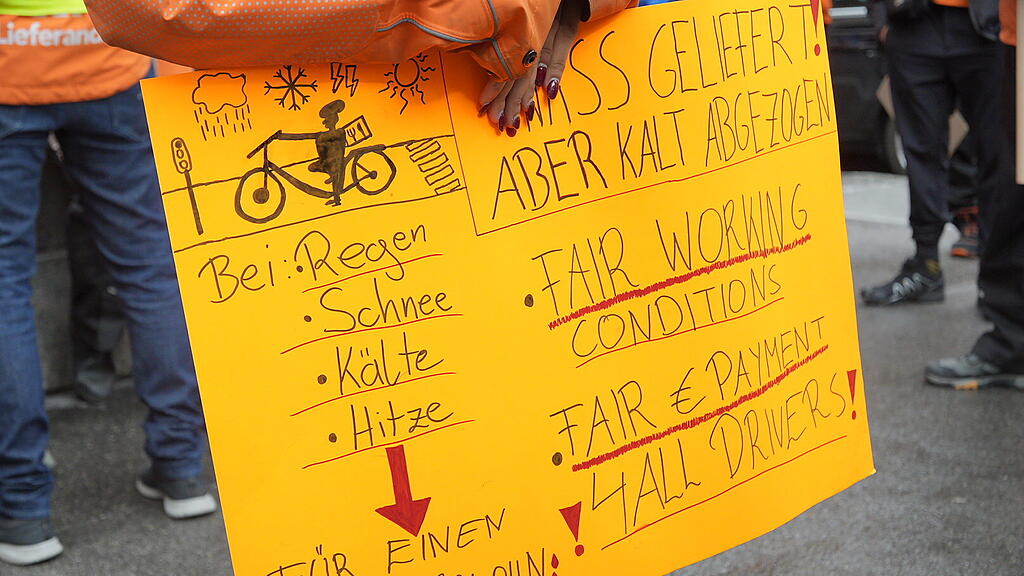 Lieferand
ASS GELIEFERT!
ABER KALT ABGEZOGEN
Bei: • Regen
• Schnee
• Kälte
• Hitze
FÜR EINEN
• FAIR WORKING
CONDITIONS
• FAIR € PAYMENT
! 4 ALL DRIVERS!